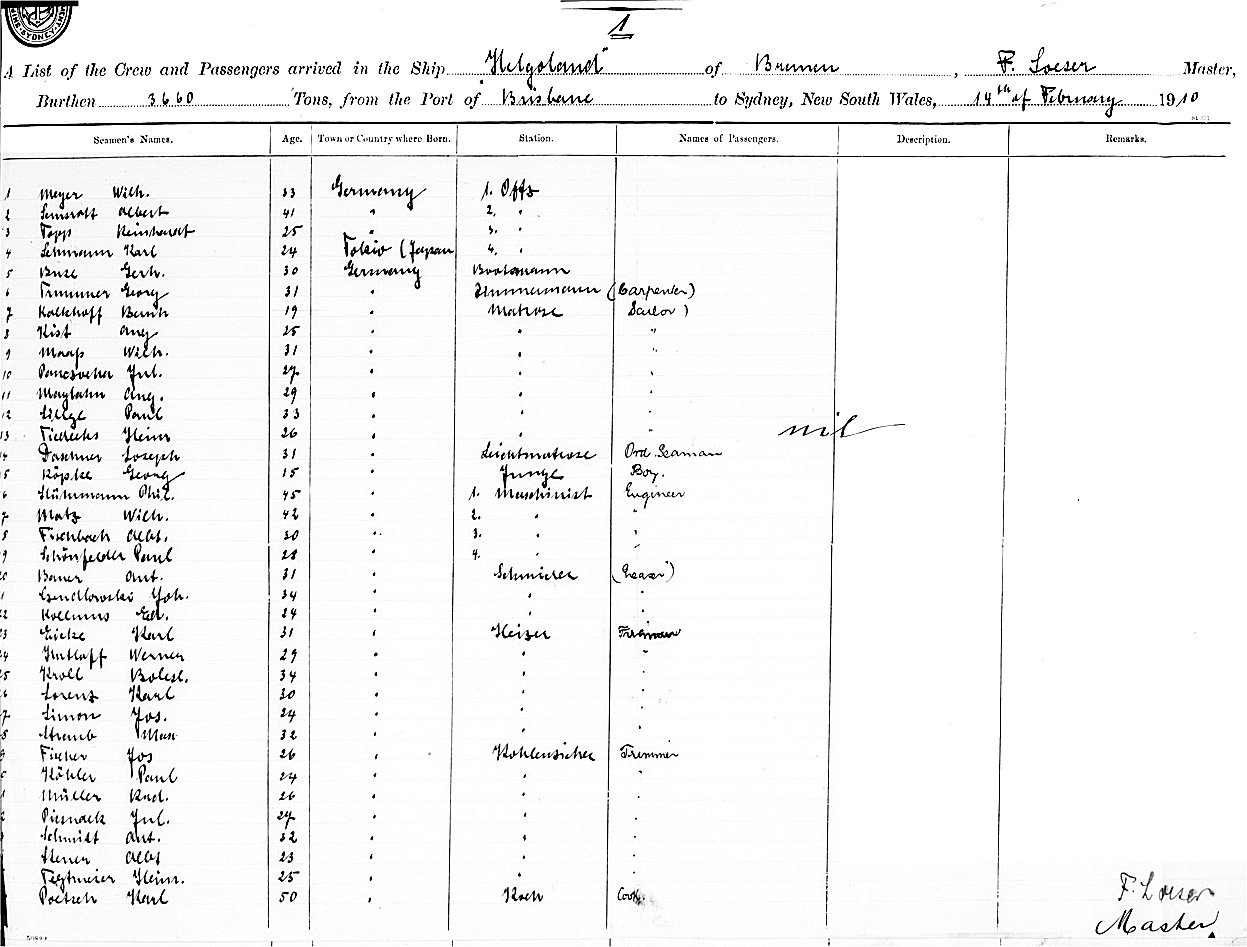 1
A List of the Crew and Passengers arrived in the Ship "Helgoland" of Bremen, F. Loeser Master,
Burthen 3660 Tons, from the Port of Brisbane to Sydney, New South Wales, 14th of February 1910
Seamen's Names. Age. Town or Country where Born. Station. Names of Passengers. Description. Remarks.
1 Meyer Wilh. 33 Germany 1. Offs
2 Albert 41 " 2. "
3 Topp Reinhardt 25 " 3. "
4 Lehmann Karl 24 Tokio (Japan 4. "
5 Buse Gerh. 30 Germany Bootsmann
6 Trummer Georg 31 " Zimmermann (Carpenter)
7 Kolkhoff Bernh 19 " Matrose Sailor)
8 Kist Aug 25 " " "
9 Maaß Wilh. 31 " " "
10 Jul. 27 " " "
11 Maylahn Aug. 29 " " "
12 Paul 33 " " "
13 Heinr 26 " " "
nil
14 Joseph 31 " Leichtmatrose Ord. Seaman
15 Köpke Georg 15 " Junge Boy.
6 Stührmann Phil. 45 " 1. Maschinist Engineer
7 Matz Wilh. 42 " 2. " "
8 Fischbach Albt. 30 " 3. " "
9 Schönfelder Paul 28 " 4. " "
20 Bauer Ant. 31 " Schmierer
1 Joh. 34 " " "
22 Ed. 24 " " "
23 Karl 31 " Heizer Fireman
24 Werner 29 " " "
25 Kroll Bolesl. 34 " " "
6 Lorenz Karl 30 " " "
7 Simon Jos. 24 " " "
8 Max 32 " " "
9 Fischer Jos 26 " Kohlenzieher Trimmer
0 Köhler Paul 24 " " "
1 Müller Rud. 26 " " "
2 Jul. 27 " " "
Schmidt Ant. 32 " " "
Albt 23 " " "
Tegtmeier Heinr. 25 " " "
Poetsch Karl 50 " Koch Cook.
F. Loeser
Master